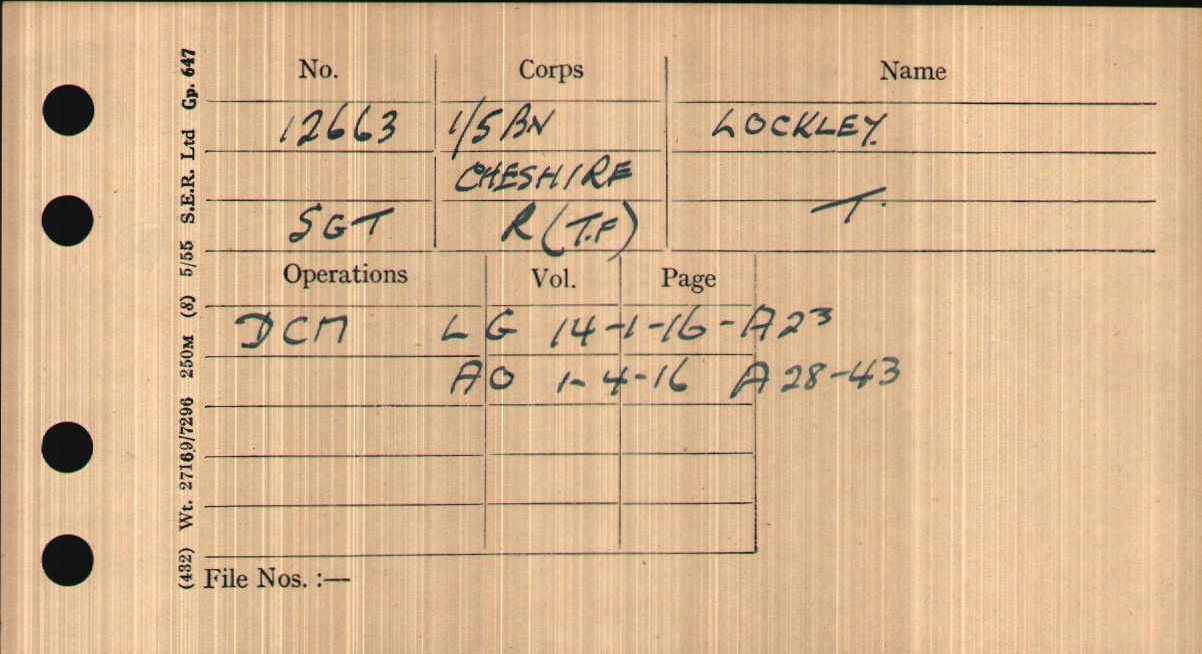 No. Corps Name
12663 1/5 BN LOCKLEY.
CHESHIRE
SGT R (T.F) T.
Operations Vol. Page
DCM L G 14-1-16-A23
AO 1-4-16 A 28-43
File Nos. :—
(432) Wt. 27169/7296 250M (8) 5/55 S.E.R. Ltd Gp. 647